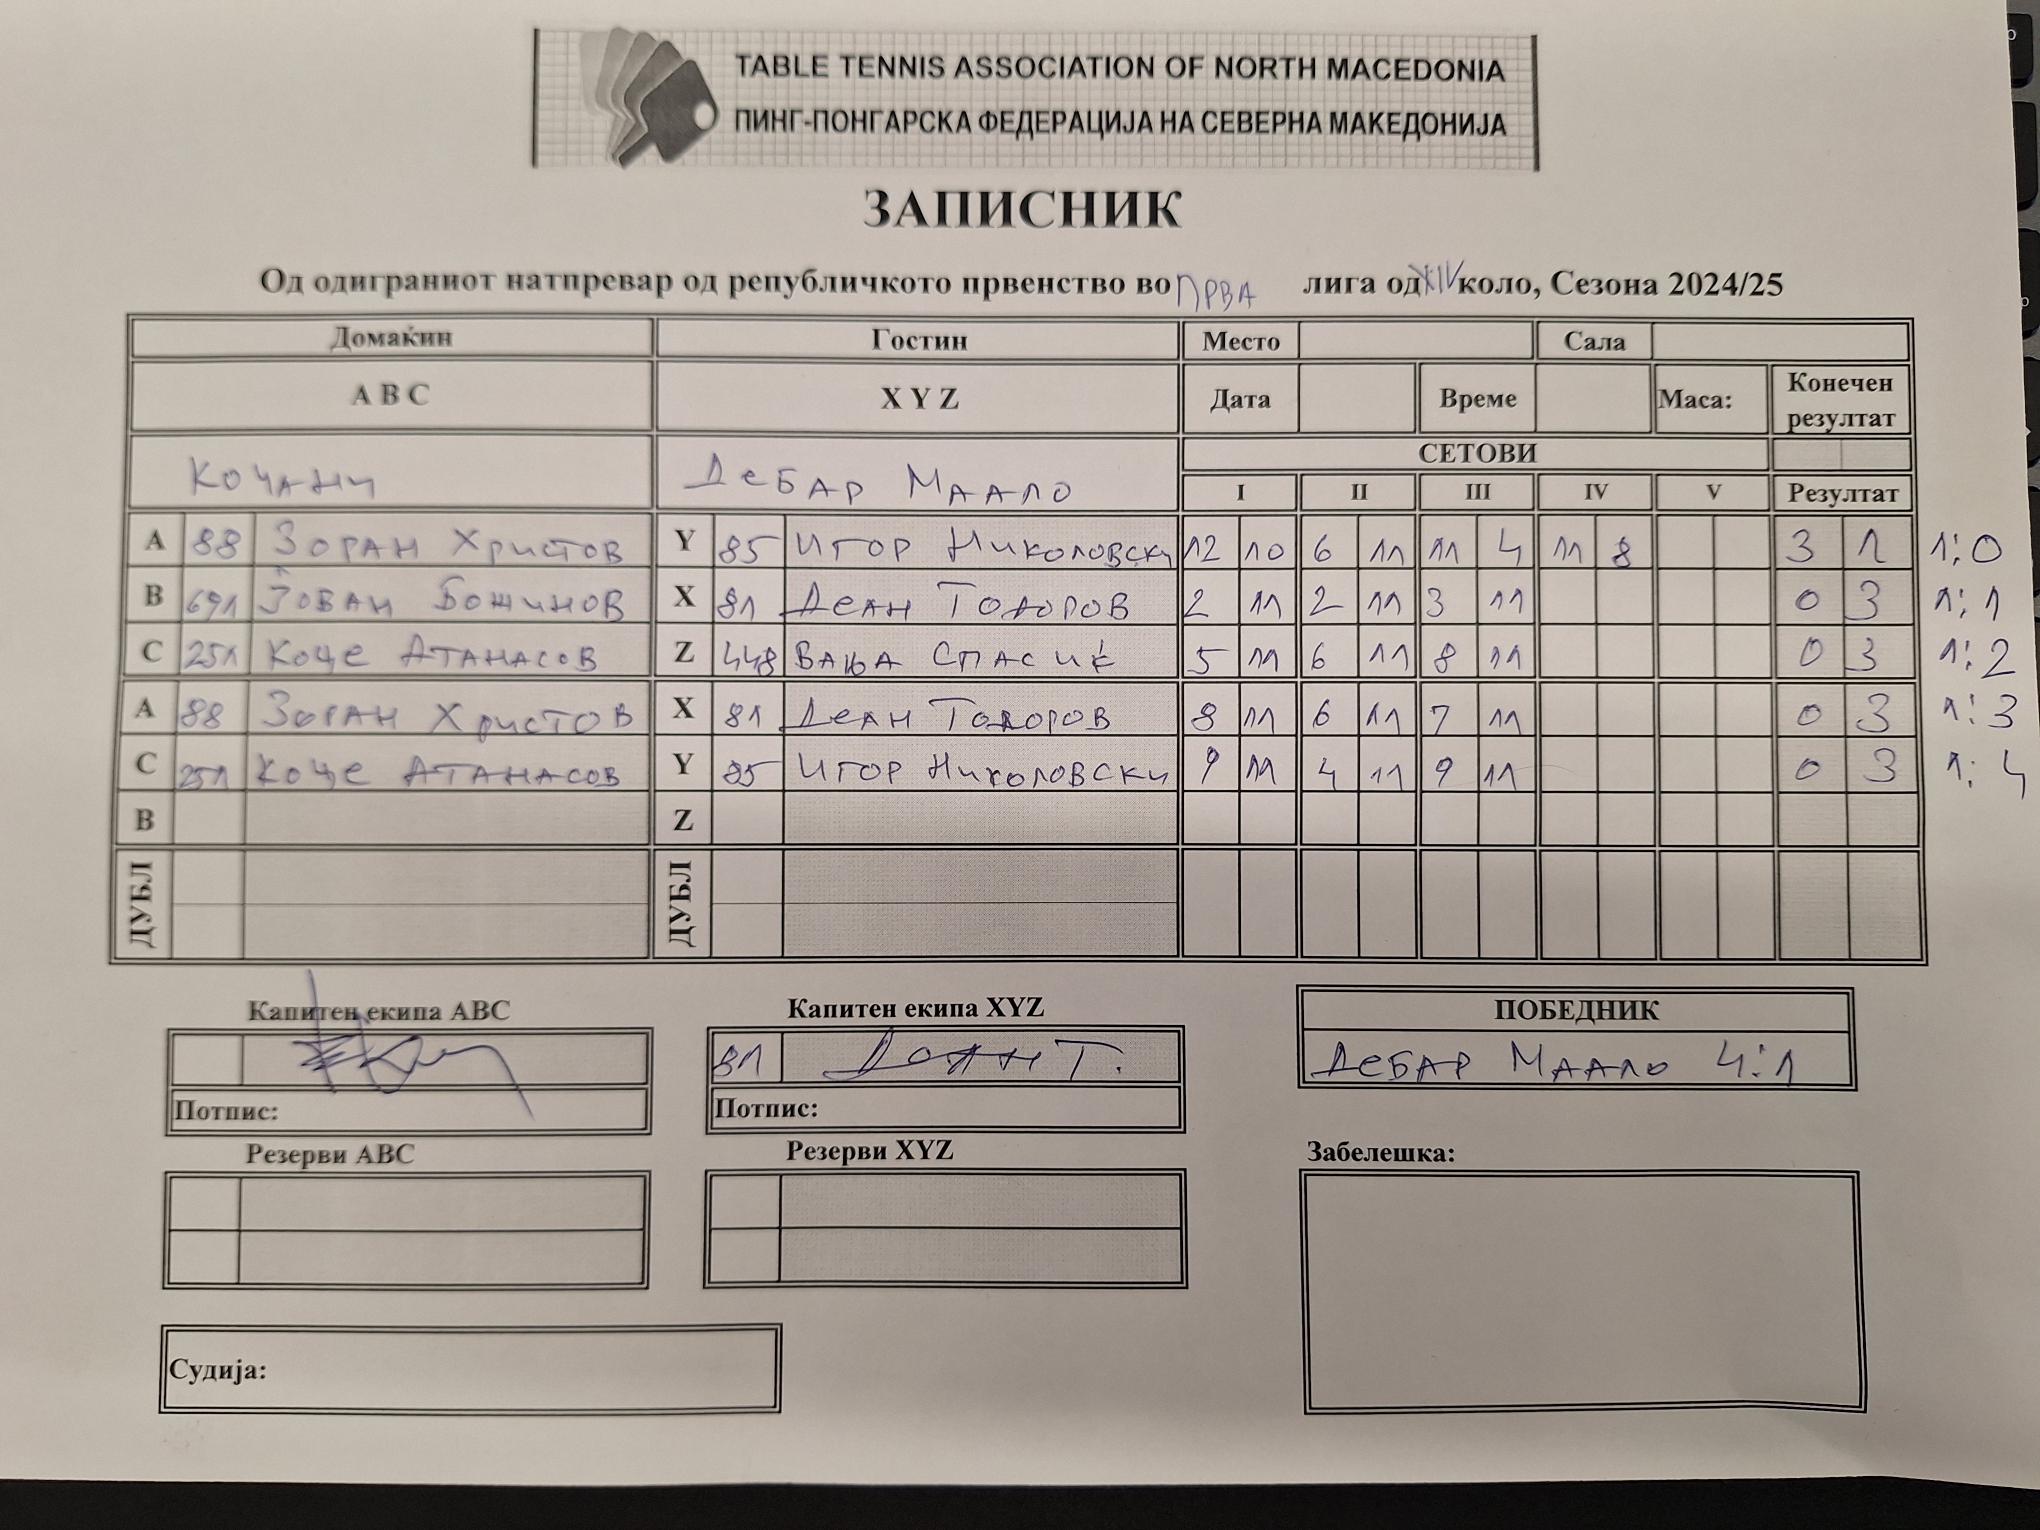 TABLE TENNIS ASSOCIATION OF NORTH MACEDONIA
ПИНГ-ПОНГАРСКА ФЕДЕРАЦИЈА НА СЕВЕРНА МАКЕДОНИЈА
ЗАПИСНИК
Од одиграниот натпревар од републичкото првенство во ПРВА лига од XIV коло, Сезона 2024/25
Домаќин Гостин Место Сала
A B C X Y Z Дата Време Маса: Конечен резултат
Кочани Дебар Маало СЕТОВИ
I II III IV V Резултат
A 88 Зоран Христов Y 85 Игор Николовски 12 10 6 11 11 4 11 8 3 1 1:0
B 691 Јован Божинов X 81 Деан Тодоров 2 11 2 11 3 11 0 3 1:1
C 251 Коце Атанасов Z 448 Вања Спасиќ 5 11 6 11 8 11 0 3 1:2
A 88 Зоран Христов X 81 Деан Тодоров 8 11 6 11 7 11 0 3 1:3
C 251 Коце Атанасов Y 85 Игор Николовски 9 11 4 11 9 11 0 3 1:4
B Z
ДУБЛ ДУБЛ
Капитен екипа ABC Капитен екипа XYZ ПОБЕДНИК
81 Деан Т. Дебар Маало 4:1
Потпис: Потпис:
Резерви ABC Резерви XYZ Забелешка:
Судија: